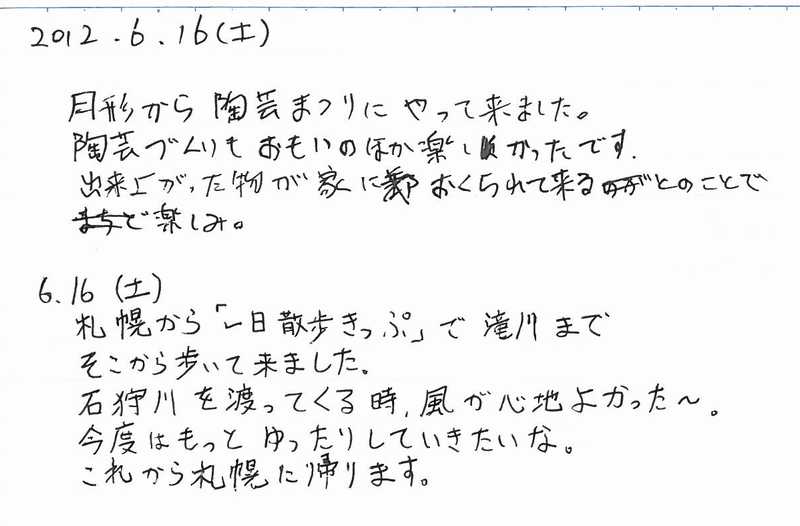 2012.6.16(土)
月形から陶芸まつりにやって来ました。
陶芸づくりもおもいのほか楽しかったです.
出来上がった物が家におくられて来るとのことで
楽しみ。
6.16(土)
札幌から「一日散歩きっぷ」で滝川まで
そこから歩いて来ました.
石狩川を渡ってくる時,風が心地よかった〜。
今度はもっとゆったりしていきたいな。
これから札幌に帰ります。